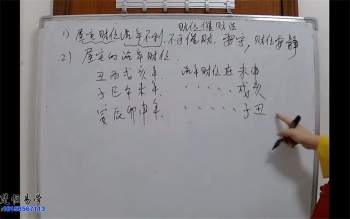 财位催财法
1) 屋宅财位流年不利,不可催财,安宁,财位安静
2) 屋宅的流年财位
丑酉戌亥年 流年财位在未申
子巳午未年 、、、、、戌亥
寅辰卯申年 、、、、、子丑